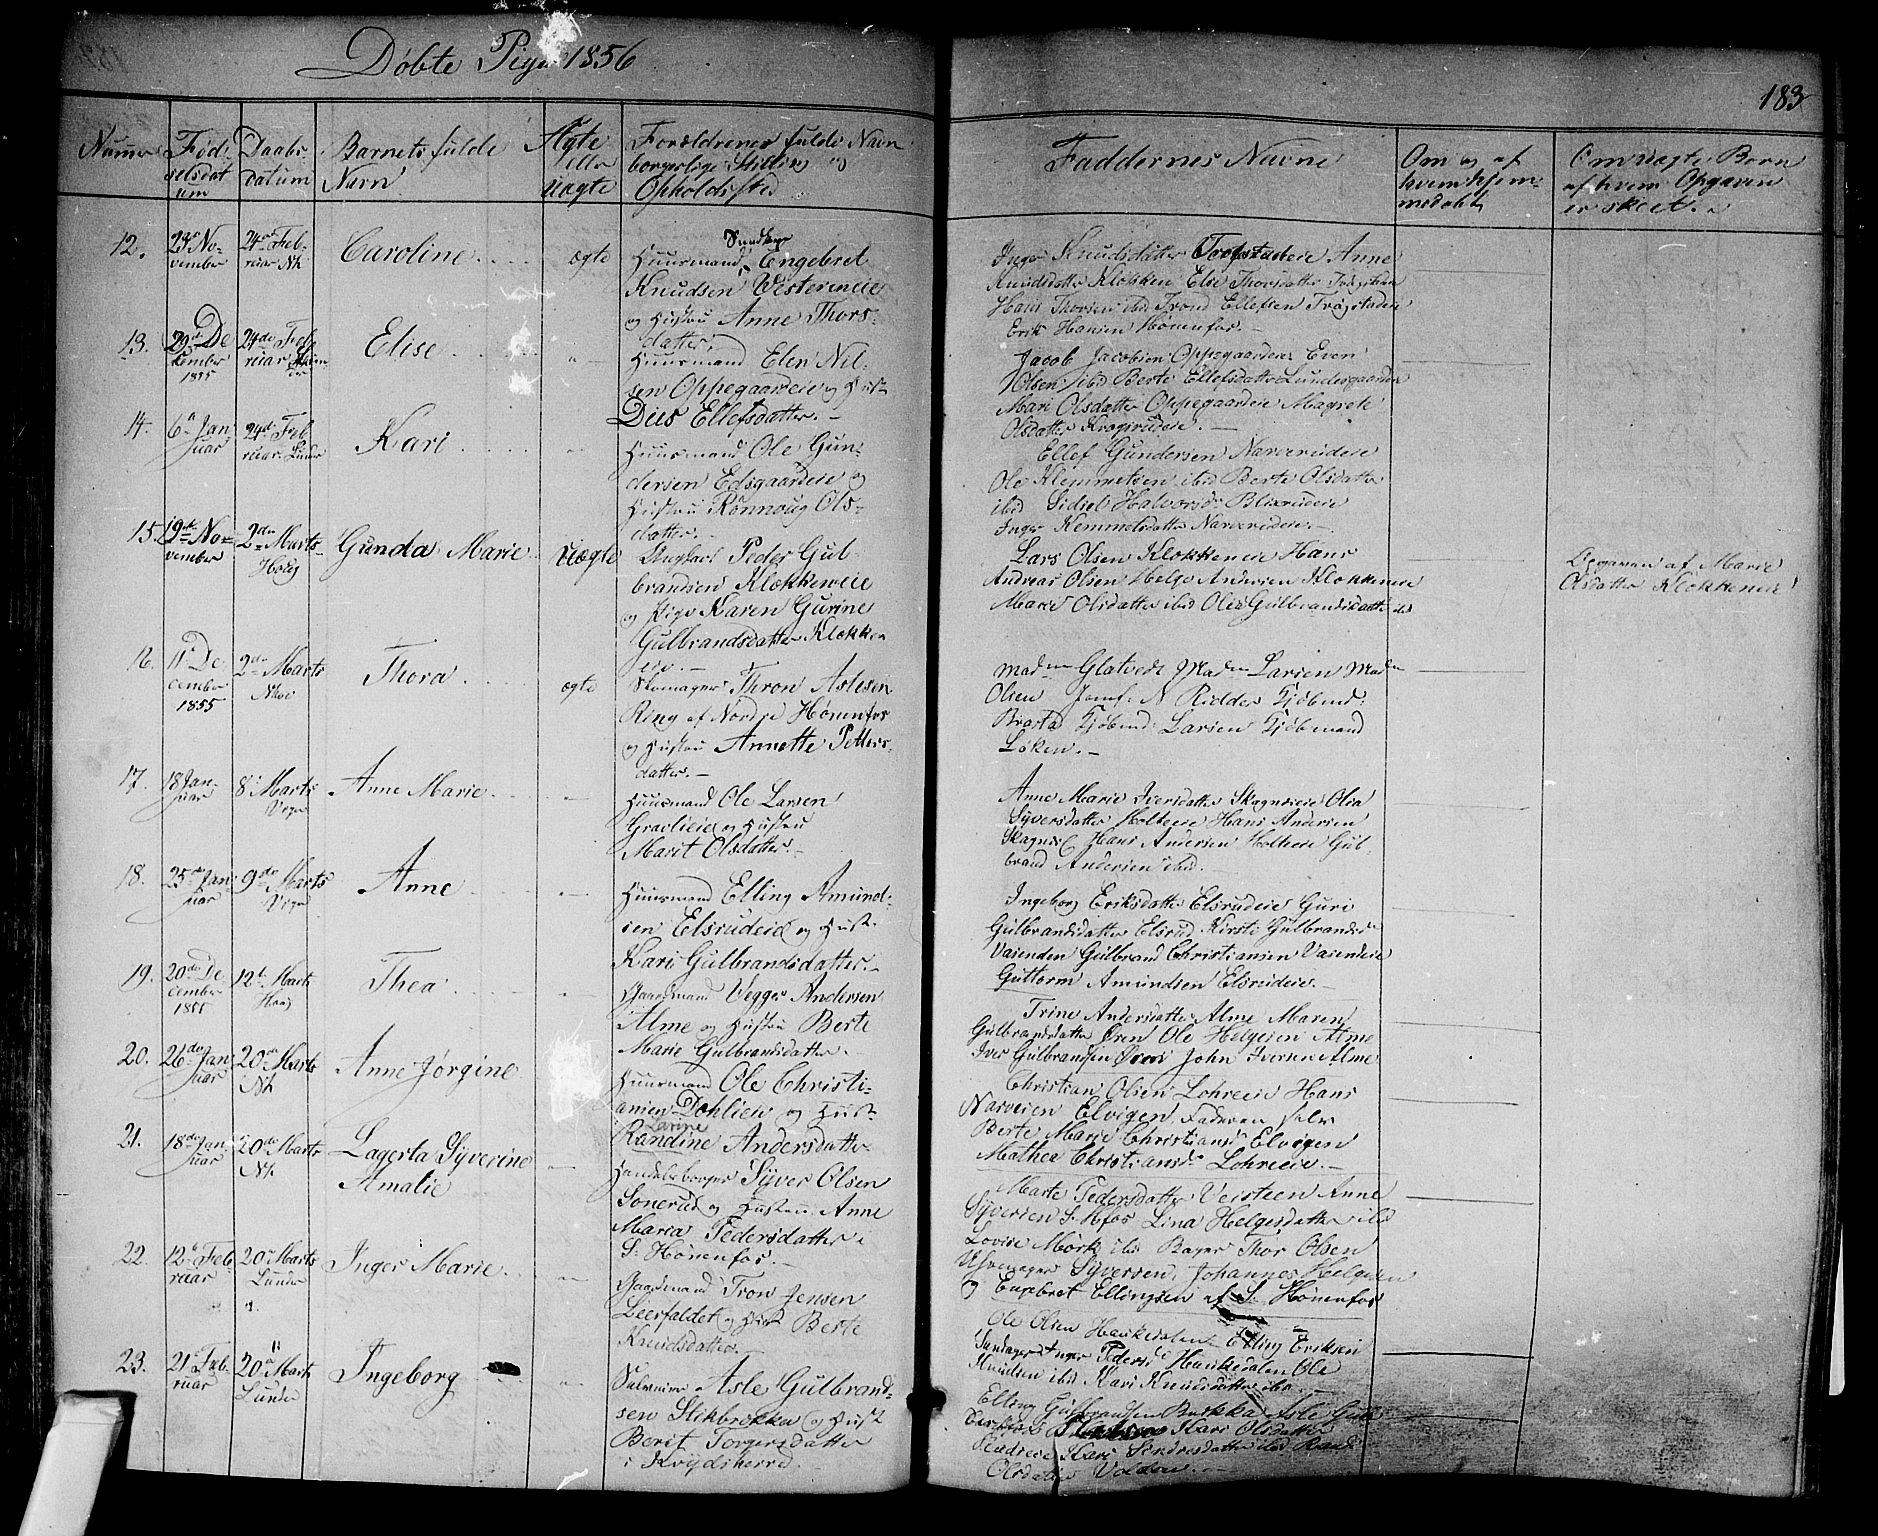 Døbte Piger 1856
183
Numer
Fød-
selsdat
um
Daabs-
datum
Barnets fulde
Navn
Ægte
eller
Uægte
Forældrenes fulde Navn
borgerlige Stilling og
Opholdssted
Faddernes Navne
Om og af
hvem hjem-
medøbt
Om uægte Børn
af hvem Opgaven
er skeet.
12.
23de No-
vember
24de Feb-
ruar Nh
Caroline
ægte
Huusmand Engebret
Knudsen Vestereneie
og Hustru Anne Thors-
datter.
Inger Knudsdatter Anne
Knudsdatter Klokken Else Thorsdatter
Hans Thorsen ibid Trond Ellefsen
Erik Hansen Hønenfos.
13.
29de De-
cember
1855
24de Feb-
ruar
Elise
"
Huusmand Elen Nil-
sen Oppegaardeie og Hust
Dus Ellefsdatter.
Jacob Jacobsen Oppegaardeie Even
Olsen ibid Berte Ellefsdatter Lundergaarden
Mari Olsdatter Oppegaardeie Magrete
Olsdatter
14.
6te Jan
uar
24de Feb
ruar Lunder
Kari
"
Huusmand Ole Gun-
dersen Edsgaardeie og
Hustru Rønnoug Ols-
datter.
Ellef Gundersen Narverudeie
Ole Klemmetsen ibid Berte Olsdatter
ibid Sidsel Halvorsdr Blixrudeie
Inger Kemmelsdatter Narverudeie.
15.
19de No-
vember
2den Marts
Houg
Gunda Marie
Uægte
Ungkarl Peder Gul-
brandsen Klokkeneie
og Pige Karen Gurine
Gulbrandsdatter Klokken
eie.
Lars Olsen Klokkeneie Hans
Andreas Olsen Helge Andersen Klokkeneie
Marie Olsdatter ibid Olea Gulbrandsdatter ibd
Opgaven af Marie
Olsdatter Klokkeneie
16.
11te De
cember
1855
2den Marts
Thora
ægte
Skomager Thron Aslesen
Ring af Nordre Hønenfos
og Hustru Annette Petters-
datter.
Madmn Glatvedt Madmn Larsen Madmn
Olsen Jomf. N Ridder Kjøbmd:
Kjøbmd: Larsen Kjøbmand
Løken.
17.
18 Jan-
uar
8de Marts
Viger
Anne Marie
"
Huusmand Ole Larsen
og Hustru
Marit Olsdatter.
Anne Marie Iversdatter Olia
Syversdatter Holteeie Hans Andersen
Hans Andersen Holteeie Gul-
brand Andersen ibid.
18.
25de Jan-
uar
9de Marts
Viger
Anne
"
Huusmand Elling Amund-
sen Elsrudeie og Hust.
Kari Gulbrandsdatter.
Ingeborg Eriksdatter Elsrudeie Guri
Gulbrandsdatter Elsrud Kirsti Gulbrandsdr
Vasenden Gulbrand Christiansen Vasendeie
Guttorm Amundsen Elsrudeie.
19.
20de De
cember
1855
12te Marts
Haug
Thea
"
Gaardmand Vegger Andersen
Alme og Hustru Berte
Marie Gulbrandsdatter.
Trine Andersdatter Alme Maren
Gulbrandsdatter Øren Ole Helgesen Alme
Iver Gulbrandsen Øren John Iversen Alme
20.
26de Jan-
uar
20de Marts
Nh
Anne Jørgine
Huusmand Ole Christi-
ansen Dohlien og Hust.
Larine
Randine Andersdatter
Christian Olsen Lohreeie Hans
Elvigen Faderen selv
Berte Marie Christiansd. Elvigen
Mathea Christiansdr Lohreeie.
21.
18de Jan-
uar
20de Marts
Nh.
Lagerta Syverine
Amalie
"
Handelsborger Syver Olsen
Sonerud og Hustru Anne
Maria Pedersdatter i
S. Hønenfos.
Marte Pedersdatter Veisteen Anne
Syversen S. Hfos Lina Helgesdatter ibd
Lovise Mørk ibd Bager Thor Olsen
Uhrmager Syversen, Johannes Helgesen
og Engebret Ellingsen af S. Hønenfos
22.
12te Feb-
ruar
20de Marts
Lunder
Inger Marie
"
Gaardmand Tron Jensen
Leerfaldet og Hust Berte
Knudsdatter.
Ole Olsen Haukedalen Elling Eriksen
Inger Pedersdr Haukedalen Ole
Knudsen ibid Kari Knudsdatter ibd.
23.
21de Feb.
ruar
20de Marts
Lunder
Ingeborg
"
Asle Gulbrand-
sen Stikbrekka og Hust
Berit Torgersdatter
i Krydsherred.
Elling Gulbrandsen Brekka Asle Gul-
Kari Olsdatter
Kari Sindresdatter ibd
Olsdatter